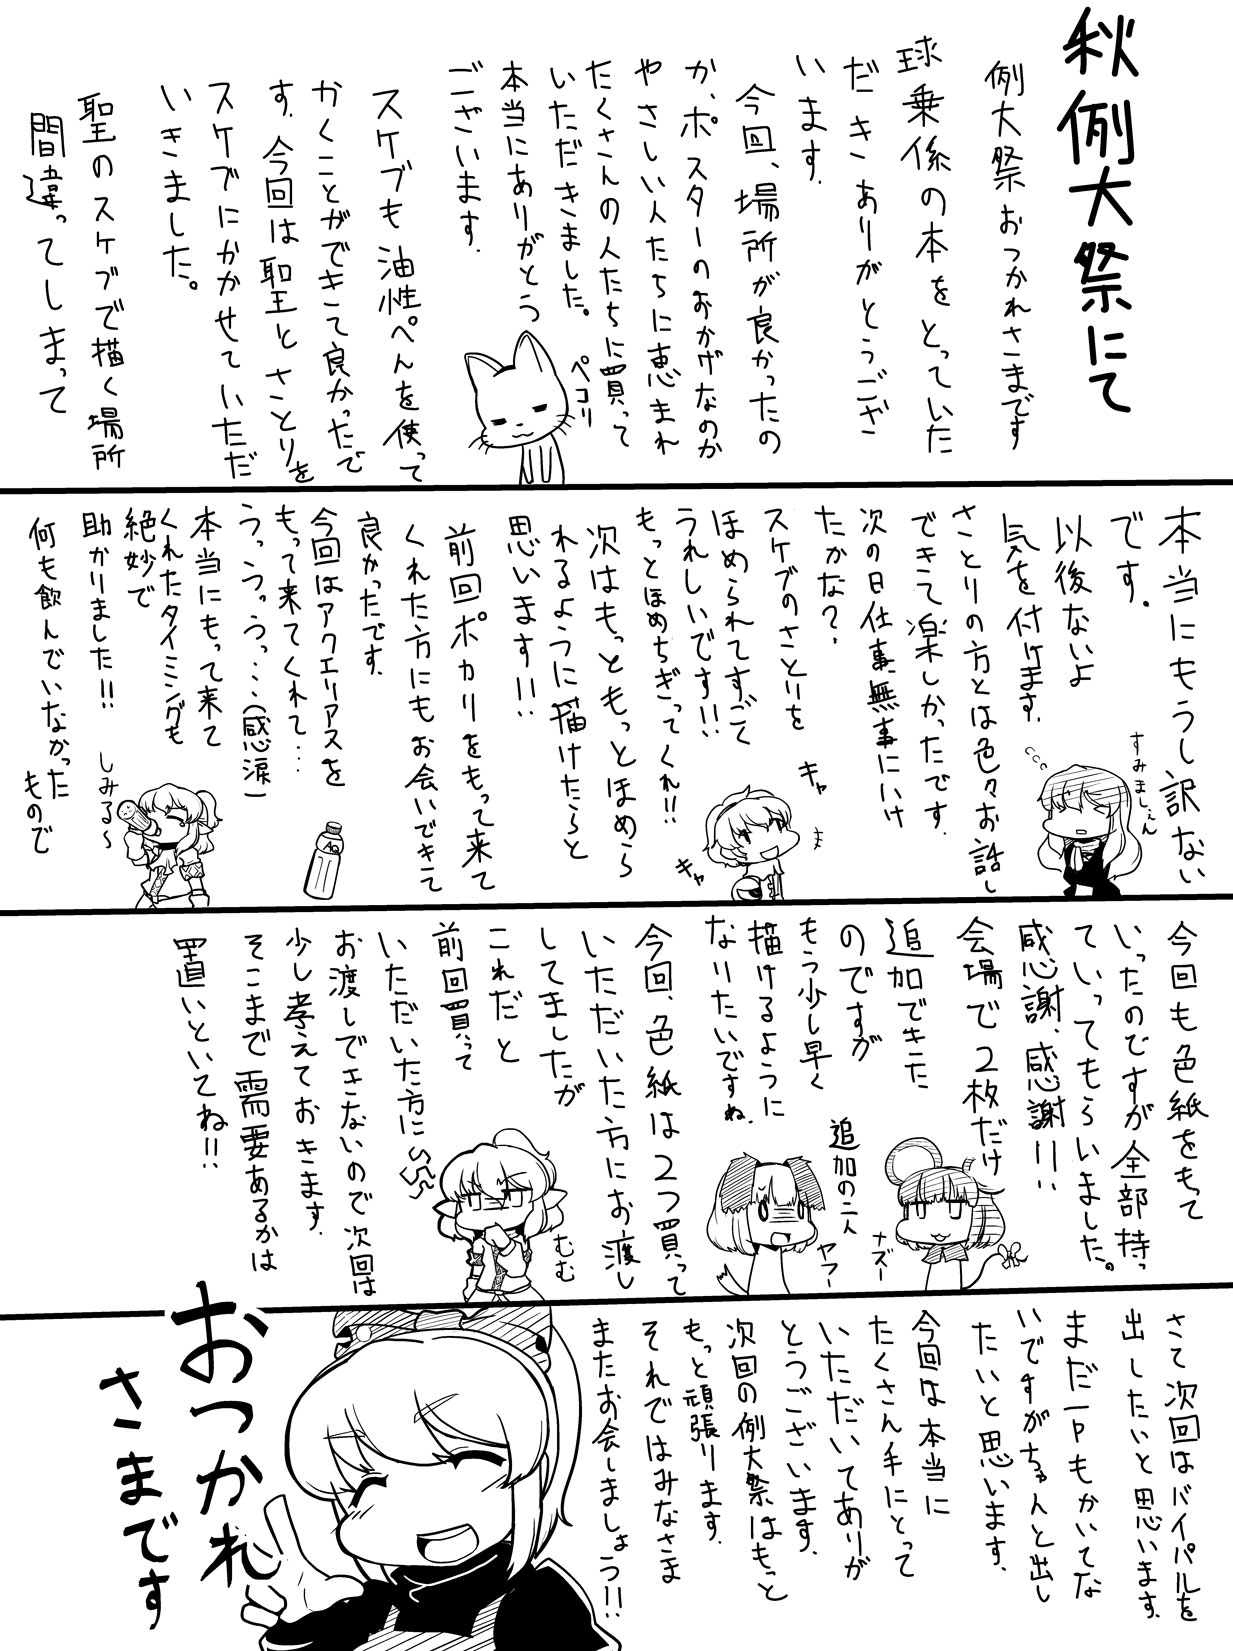 秋例大祭にて
例大祭おつかれさまです
球乗係の本をとっていた
だきありがとうござ
います.
今回、場所が良かったの
か、ポスターのおかげなのか
やさしい人たちに恵まれ
たくさんの人たちに買って
いただきました。
本当にありがとう
ございます.
ペコリ
スケブも油性ぺんを使って
かくことができて良かったで
す.今回は聖とさとりを
スケブにかかせていただ
いきました。
聖のスケブで描く場所
間違ってしまって
本当にもうし訳ない
です.
以後ないよ
気を付けます.
すみましぇん
さとりの方とは色々お話し
できて楽しかったです.
次の日仕事無事にいけ
たかな?
スケブのさとりを
ほめられてすごく
うれしいです!!
もっとほめちぎってくれ!!
キャ
キャ
次はもっともっとほめら
れるように描けたらと
思います!!
前回ポカリをもって来て
くれた方にもお会いできて
良かったです.
今回はアクエリアスを
もって来てくれて…
うっうっうっ…(感涙)
本当にもって来て
くれたタイミングも
絶妙で
助かりました!!
しみる〜
何も飲んでいなかった
もので
今回も色紙をもって
いったのですが全部持っ
ていってもらいました。
感謝、感謝!!
会場で2枚だけ
追加できた
のですが
もう少し早く
描けるように
なりたいですね.
追加の二人
ナズー
ヤフー
今回、色紙は2つ買って
いただいた方にお渡し
してましたが
これだと
前回買って
いただいた方に
お渡しできないので次回は
少し考えておきます.
そこまで需要あるかは
置いといてね!!
むむ
さて次回はバイパルを
出したいと思います.
まだ一Pもかいてな
いですがちゃんと出し
たいと思います.
今回は本当に
たくさん手にとって
いただいてありが
とうございます.
次回の例大祭はもっと
もっと頑張ります.
それではみなさま
またお会しましょう!!
おつかれ
さまです